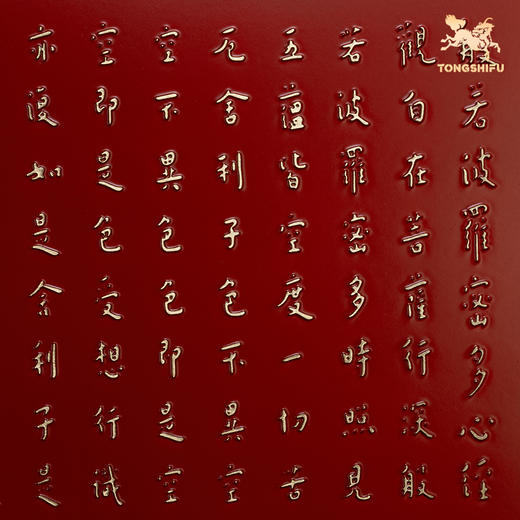 般若波羅密多心經
觀自在菩薩行深般
若波羅密多時照見
五蘊皆空度一切苦
厄舍利子色不異空
空不異色色即是空
空即是色受想行識
亦復如是舍利子是
TONGSHIFU